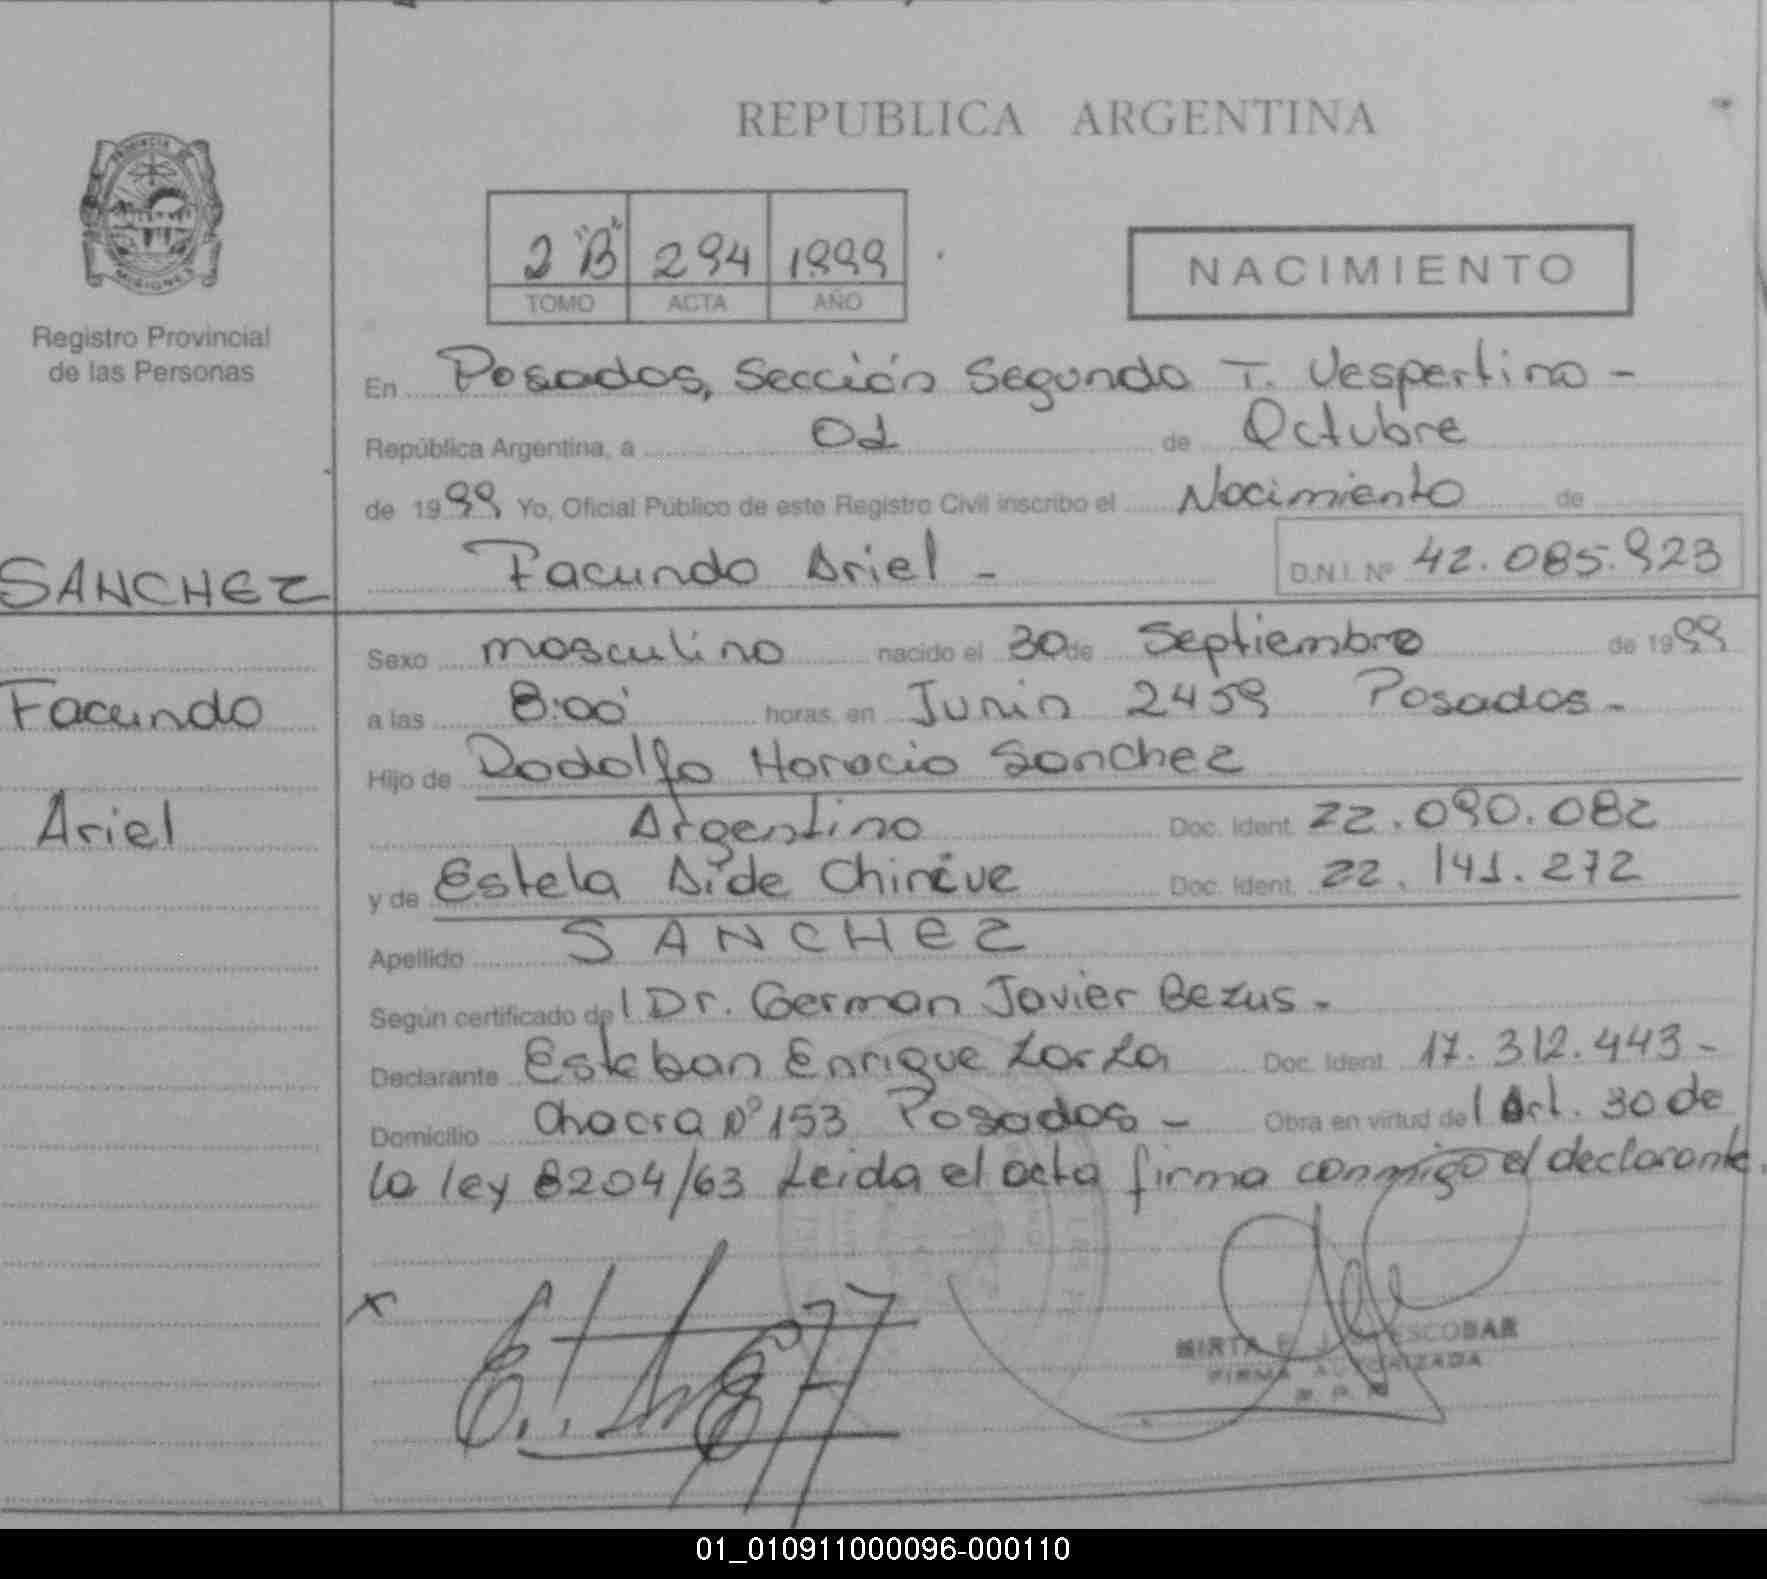 REPUBLICA ARGENTINA
PROVINCIA DE
MISIONES
Registro Provincial
de las Personas
2 "B" 294 1999
TOMO ACTA AÑO
NACIMIENTO
En Posadas, Sección Segunda T. Vespertino -
República Argentina, a 01 de Octubre
de 1999 Yo, Oficial Público de este Registro Civil inscribo el Nacimiento de
Facundo Ariel - D.N.I. Nº 42.085.923
SANCHEZ
Facundo
Ariel
Sexo masculino nacido el 30 de Septiembre de 1999
a las 8:00' horas en Junin 2459 Posadas -
Hijo de Rodolfo Horacio Sanchez
Argentino Doc. Ident. 22.090.082
y de Estela Aide Chirive Doc. Ident. 22.141.272
Apellido SANCHEZ
Según certificado del Dr. German Javier Bezus -
Declarante Esteban Enrique Zarza Doc. Ident. 17.312.443 -
Domicilio Chacra Nº 153 Posadas - Obra en virtud del Art. 30 de
la ley 8204/63 Leida el acta firma conmigo el declarante.
x
MIRTA ESCOBAR
FIRMA AUTORIZADA
01_010911000096-000110